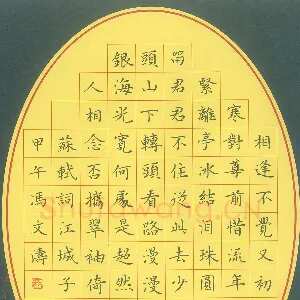 相逢不覺又初
寒對尊前惜流年
緊離亭冰結泪珠圓
留君君不住從此去少
頭山下轉頭看路漫漫
銀海光寬何處是超然
人相念否攜翠袖倚
蘇軾詞江城子
甲午馮文濤